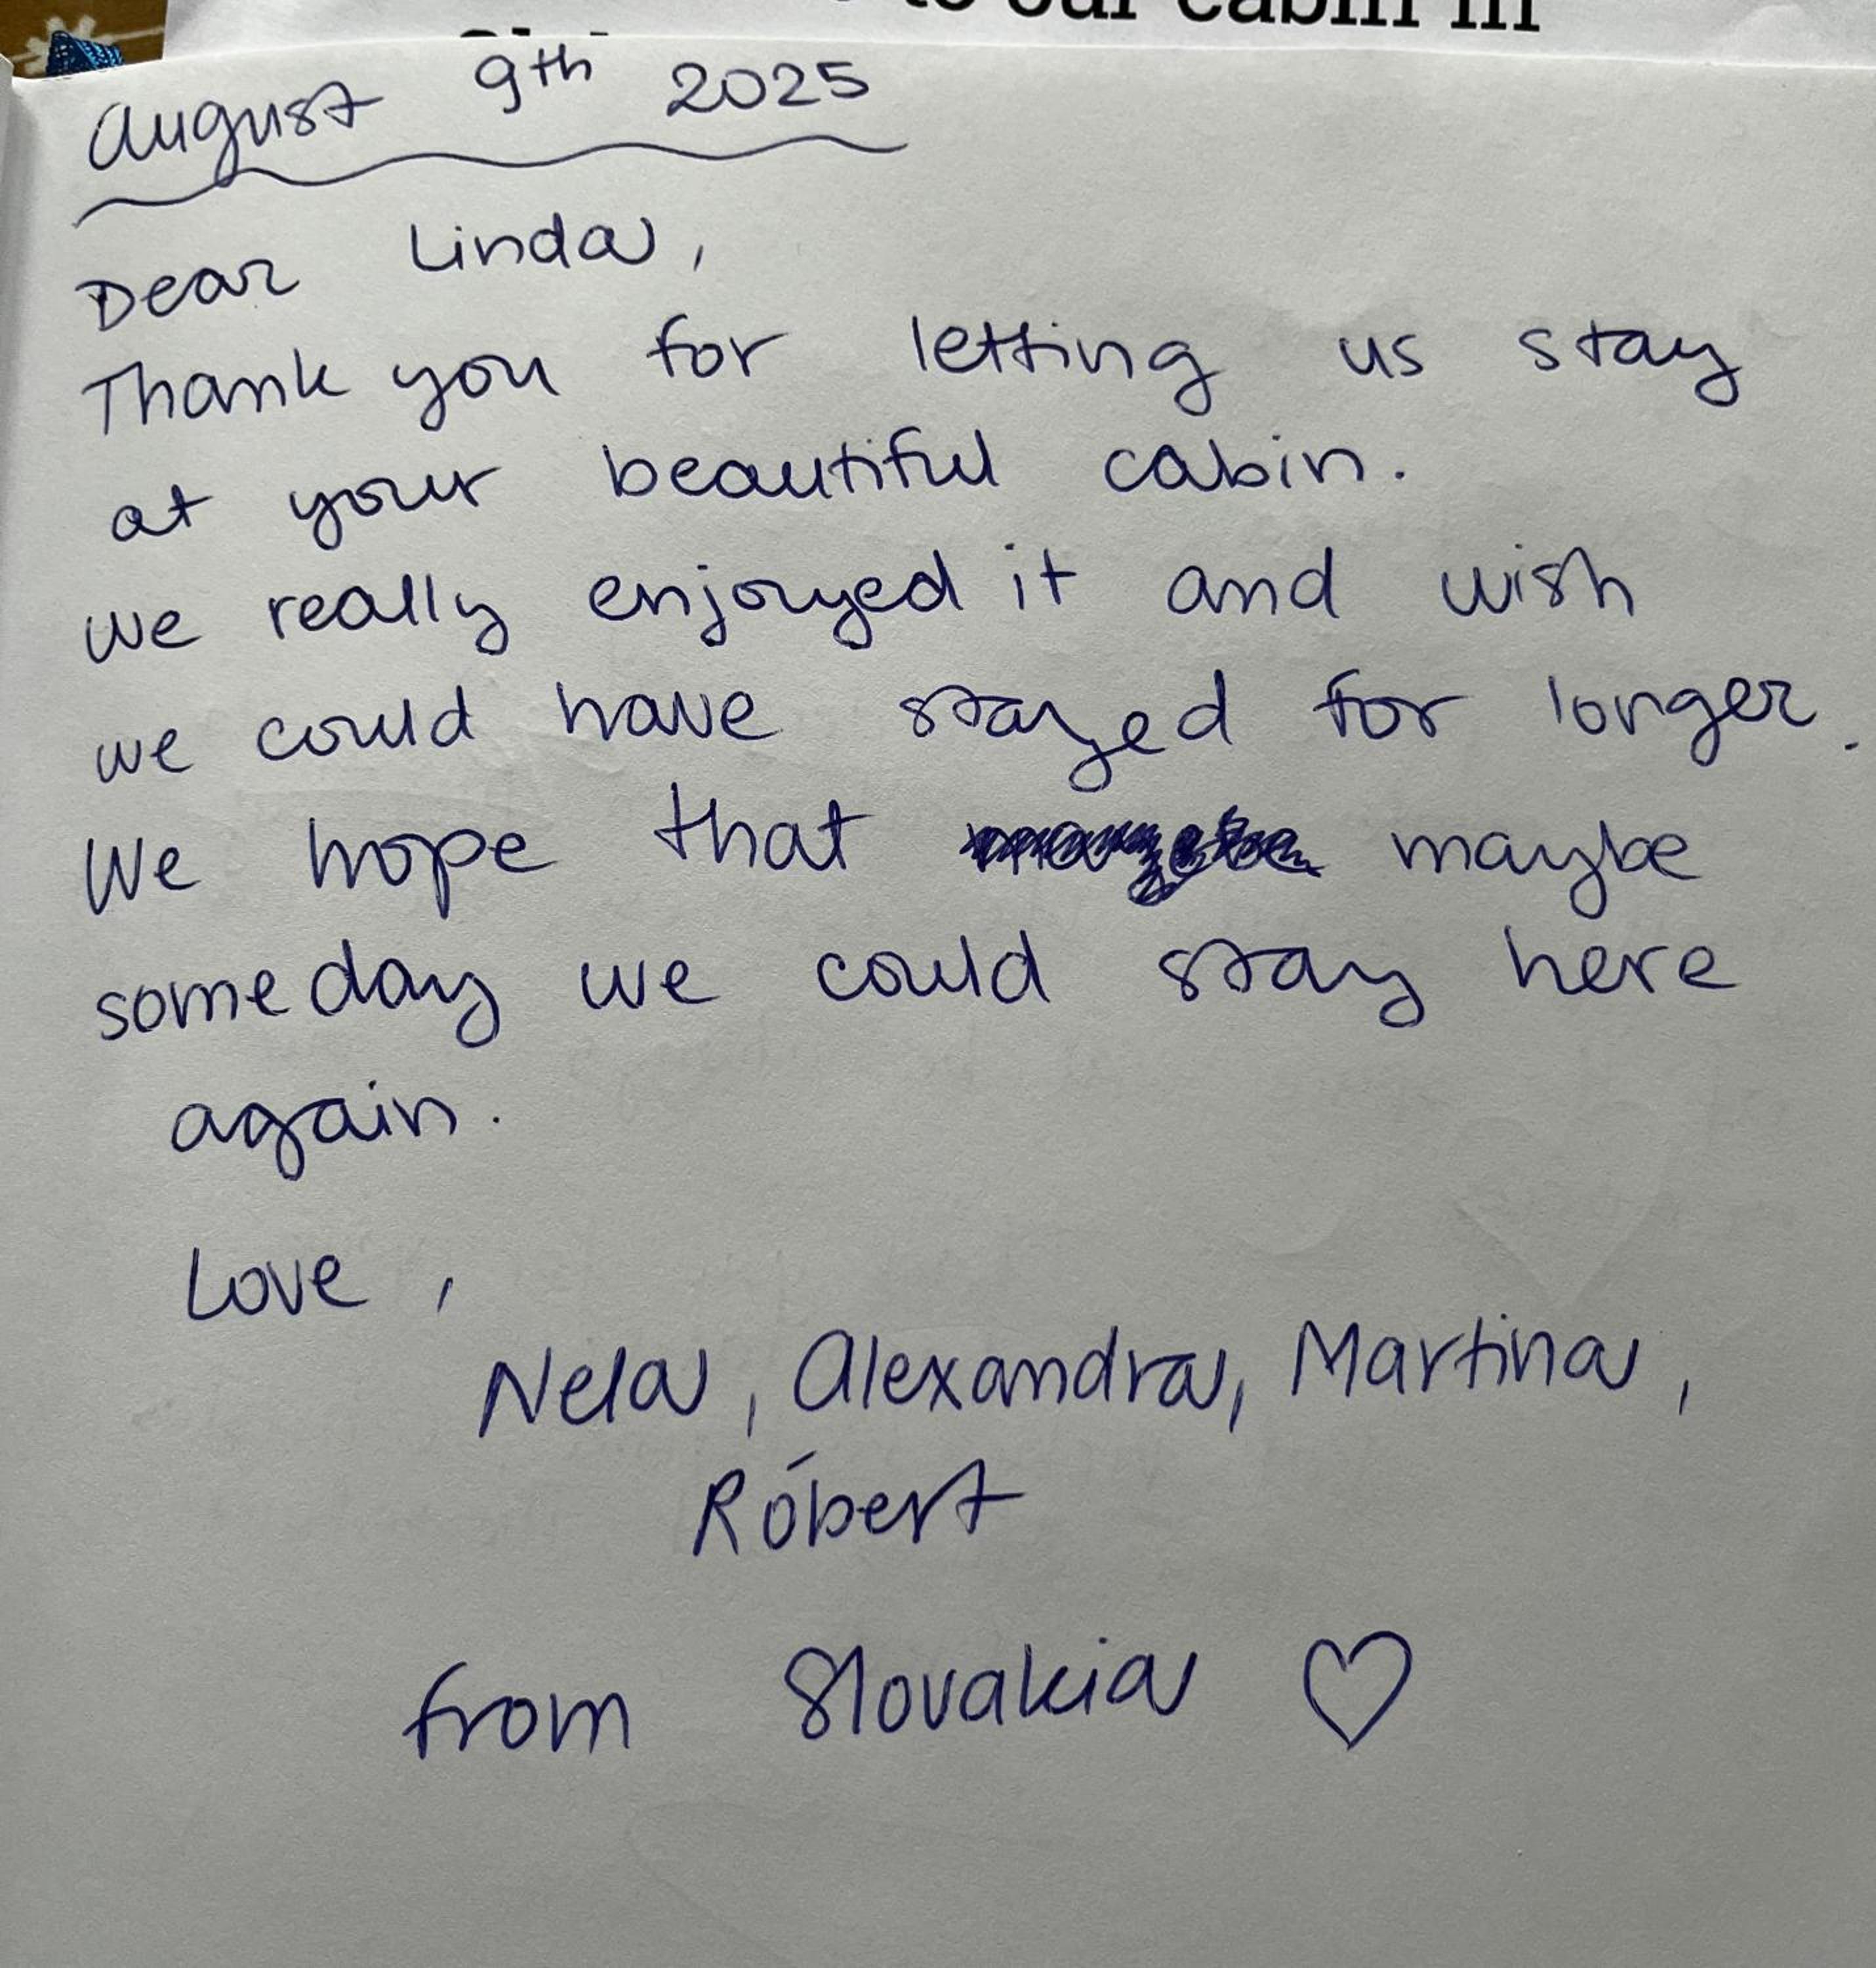 to our cabin in
August 9th 2025
Dear Linda,
Thank you for letting us stay
at your beautiful cabin.
we really enjoyed it and wish
we could have stayed for longer.
We hope that maybe
someday we could stay here
again.
Love,
Nela, Alexandra, Martina,
Róbert
from Slovakia ♡